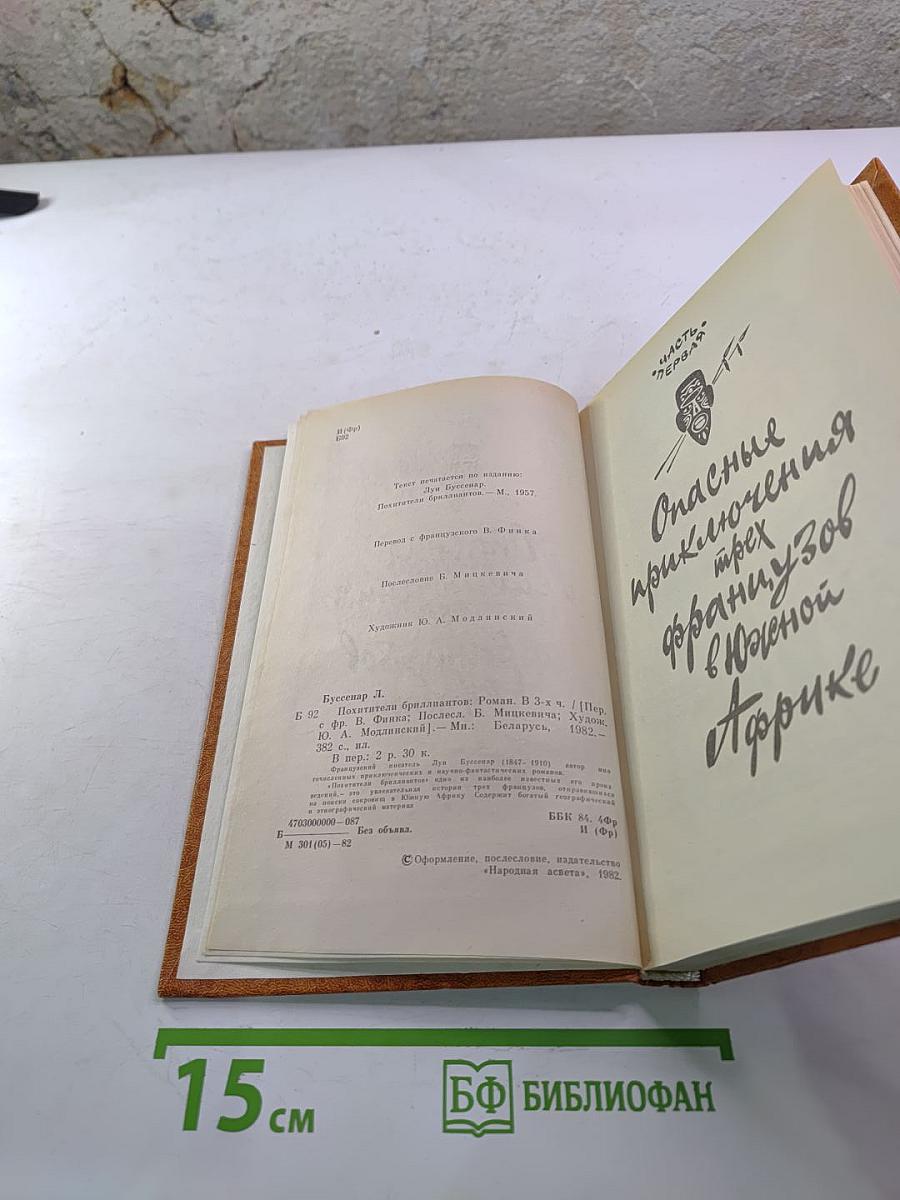 И(Фр)
Б92
Текст печатается по изданию:
Луи Буссенар.
Похитители бриллиантов. — М., 1957.
Перевод с французского В. Финка
Послесловие Б. Мицкевича
Художник Ю. А. Модлинский
Буссенар Л.
Б 92 Похитители бриллиантов: Роман. В 3-х ч. / [Пер.
с фр. В. Финка; Послесл. Б. Мицкевича; Худож.
Ю. А. Модлинский]. — Мн.: Беларусь, 1982. —
382 с., ил.
В пер.: 2 р. 30 к.
Французский писатель Луи Буссенар (1847–1910) автор мно
гочисленных приключенческих и научно-фантастических романов.
«Похитители бриллиантов» одно из наиболее известных его произ
ведений, — это увлекательная история трех французов, отправившихся
на поиски сокровищ в Южную Африку Содержит богатый географический
и этнографический материал
4703000000—087
Б Без объявл.
М 301(05)—82
ББК 84. 4Фр
И (Фр)
© Оформление, послесловие, издательство
«Народная асвета», 1982.
ЧАСТЬ
ПЕРВАЯ
Опасные
приключения
трех
французов
в Южной
Африке
15 см
БФ БИБЛИОФАН